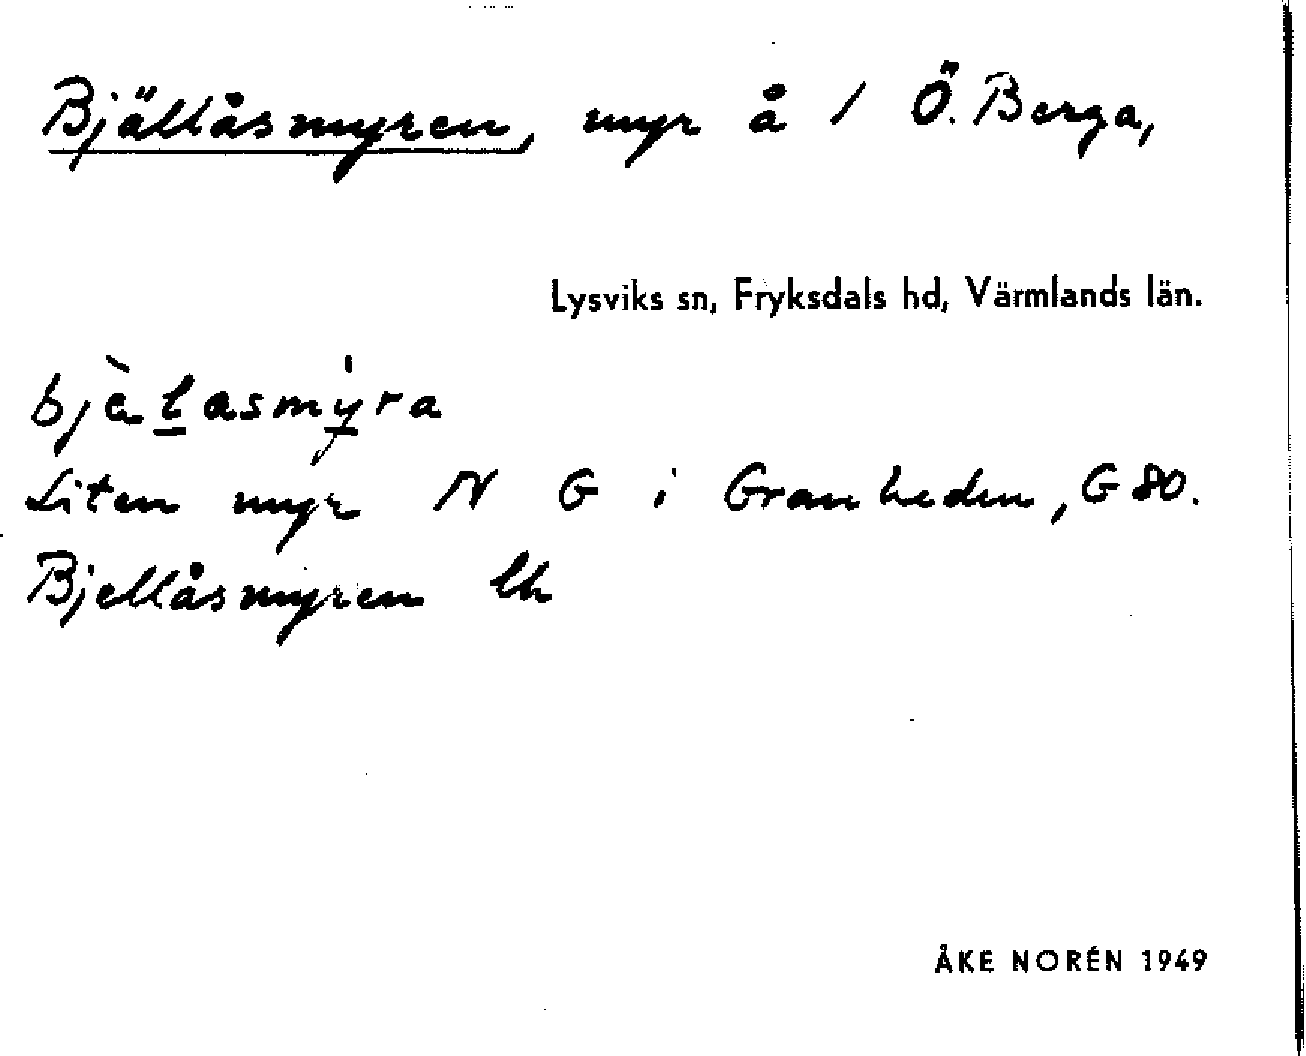 Bjällåsmyren, myr å 1 Ö. Berga,
Lysviks sn, Fryksdals hd, Värmlands län.
bjèlasmy̍ra
Liten myr N G i Granheden, G 80.
Bjellåsmyren lk
ÅKE NORÉN 1949